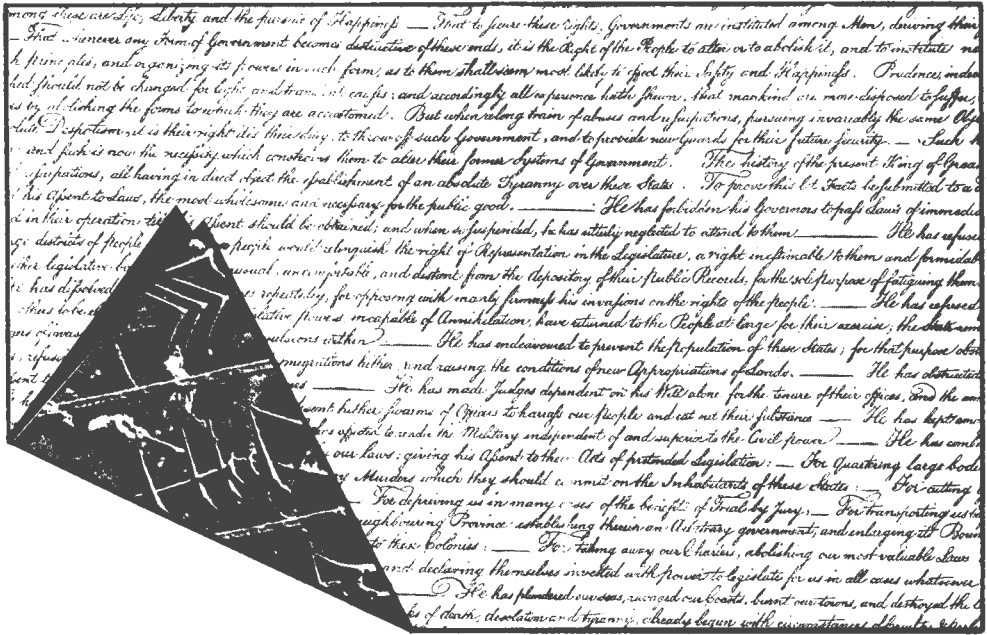 mong these are Life, Liberty and the pursuit of Happiness — That to secure these rights, Governments are instituted among Men, deriving their
— That whenever any Form of Government becomes destructive of these ends, it is the Right of the People to alter or to abolish it, and to institute
principles, and organizing its powers in such form, as to them shall seem most likely to effect their Safety and Happiness. Prudence, indeed
should not be changed for light and transient causes; and accordingly all experience hath shewn, that mankind are more disposed to suffer,
by abolishing the forms to which they are accustomed. But when a long train of abuses and usurpations, pursuing invariably the same Obje
Despotism, it is their right, it is their duty, to throw off such Government, and to provide new Guards for their future security. — Such
and such is now the necessity which constrains them to alter their former Systems of Government. The history of the present King of Great
usurpations, all having in direct object the establishment of an absolute Tyranny over these States. To prove this let Facts be submitted to a
his Assent to Laws, the most wholesome and necessary for the public good. — He has forbidden his Governors to pass Laws of immedia
in their operation Assent should be obtained; and when so suspended, he has utterly neglected to attend to them — He has refused
districts of people people would relinquish the right of Representation in the Legislature, a right inestimable to them and formidab
legislative unusual, uncomfortable, and distant from the depository of their Public Records, for the sole purpose of fatiguing them
has dissolved repeatedly, for opposing with manly firmness his invasions on the rights of the people. — He has refused
others to be powers, incapable of Annihilation, have returned to the People at large for their exercise; the State
convulsions within — He has endeavoured to prevent the Population of these States; for that purpose
migrations hither, and raising the conditions of new Appropriations of Lands. — He has obstructed
— He has made Judges dependent on his Will alone for the tenure of their offices, and the
sent hither swarms of Officers to harass our People and eat out their substance — He has kept
to render the Military independent of and superior to the Civil power — He has
our laws; giving his Assent to their Acts of pretended Legislation: — For quartering large bodi
Murders which they should commit on the Inhabitants of these States: — For cutting
— For depriving us in many cases of the benefit of Trial by Jury: — For transporting us
neighbouring Province establishing therein an Arbitrary government, and enlarging its Boun
to these Colonies: — For taking away our Charters, abolishing our most valuable Laws
and declaring themselves invested with power to legislate for us in all cases whatsoever
— He has plundered our seas, ravaged our Coasts, burnt our towns, and destroyed the
of death, desolation and tyranny, already begun with circumstances of